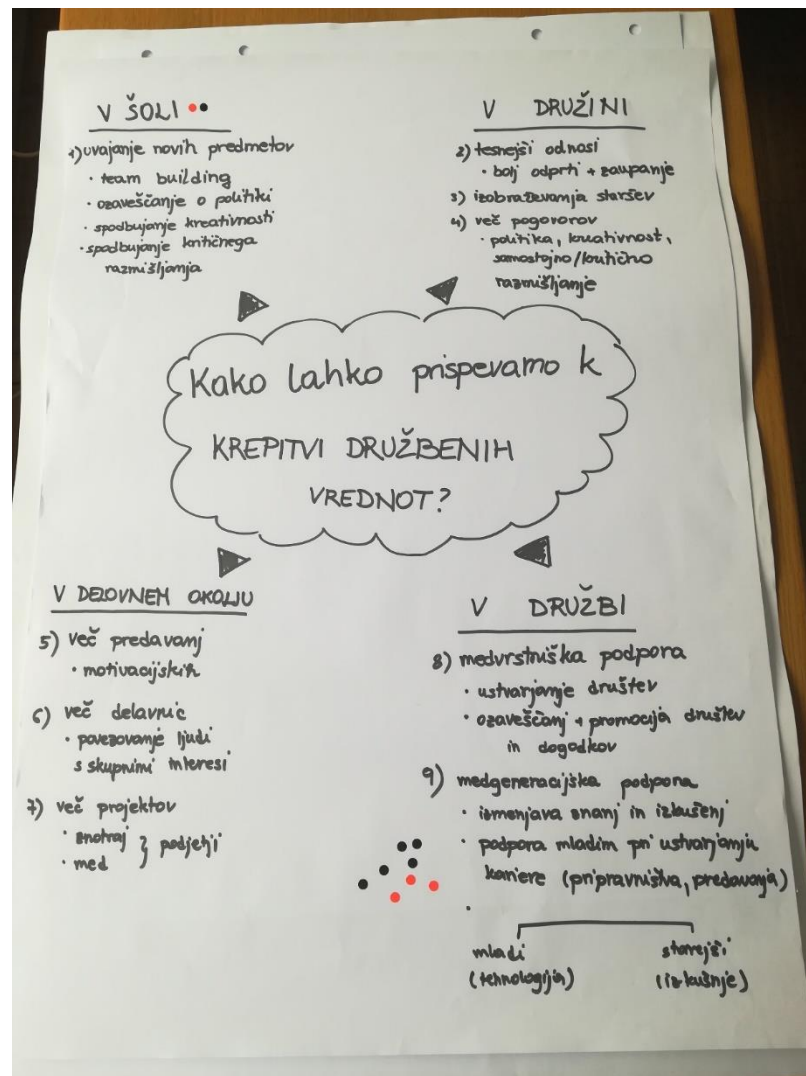 V ŠOLI
1) uvajanje novih predmetov
· team building
· ozaveščanje o politiki
· spodbujanje kreativnosti
· spodbujanje kritičnega
razmišljanja
V DRUŽINI
2) tesnejši odnosi
· bolj odprti + zaupanje
3) izobraževanja staršev
4) več pogovorov
· politika, kreativnost,
samostojno/kritično
razmišljanje
Kako lahko prispevamo k
KREPITVI DRUŽBENIH
VREDNOT?
V DELOVNEM OKOLJU
5) več predavanj
· motivacijskih
6) več delavnic
· povezovanje ljudi
s skupnimi interesi
7) več projektov
· znotraj } podjetji
· med
V DRUŽBI
8) medvrstniška podpora
· ustvarjanje društev
· ozaveščanj + promocija društev
in dogodkov
9) medgeneracijska podpora
· izmenjava znanj in izkušenj
· podpora mladim pri ustvarjanju
kariere (pripravništva, predavanja)
mladi starejši
(tehnologija) (izkušnje)